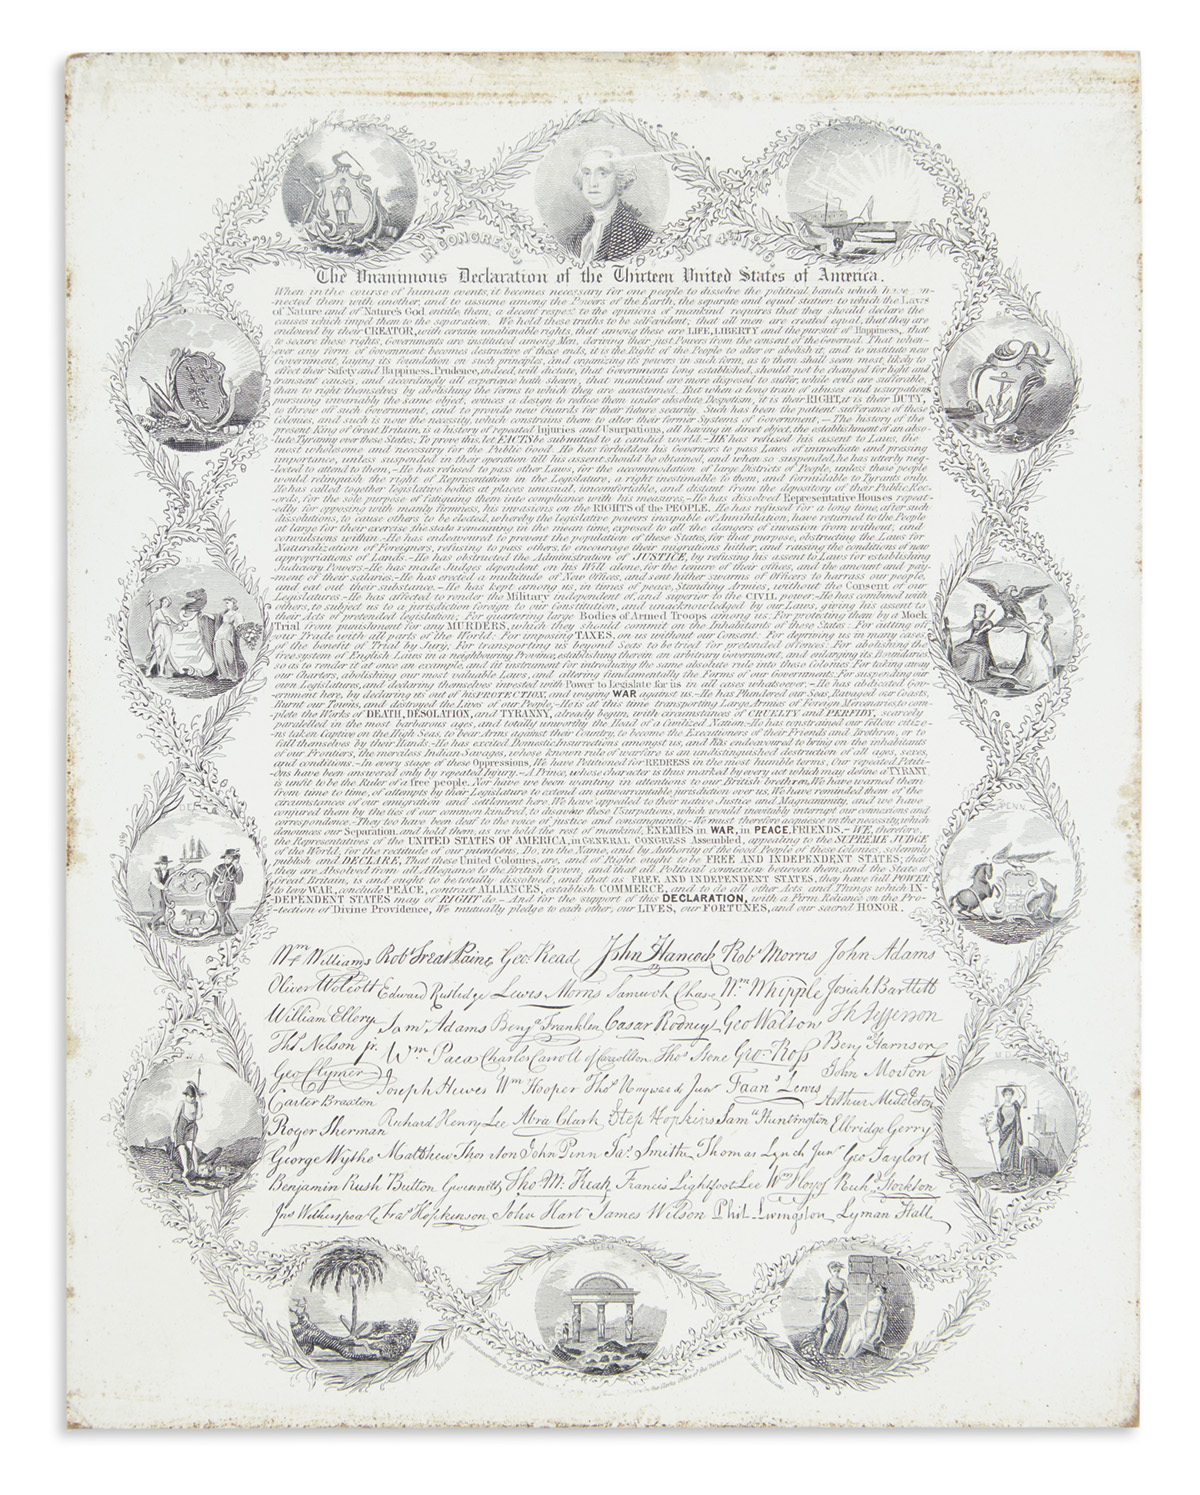 IN CONGRESS JULY 4TH 1776
The Unanimous Declaration of the Thirteen United States of America.
When in the course of human events, it becomes necessary for one people to dissolve the political bands which have con-
-nected them with another, and to assume among the Powers of the Earth, the separate and equal station to which the Laws
of Nature and of Nature's God entitle them, a decent respect to the opinions of mankind requires that they should declare the
causes which impel them to the separation. We hold these truths to be selfevident, that all men are created equal, that they are
endowed by their CREATOR, with certain unalienable rights, that among these are LIFE, LIBERTY and the pursuit of Happiness, that
to secure these rights, Governments are instituted among Men, deriving their just Powers from the consent of the Governed. That when-
ever any form of Government becomes destructive of these ends, it is the Right of the People to alter or abolish it, and to institute new
Government, laying its foundation on such principles, and organizing its powers in such form, as to them shall seem most likely to
effect their Safety and Happiness. Prudence, indeed, will dictate, that Governments long established, should not be changed for light and
transient causes, and accordingly all experience hath shewn, that mankind are more disposed to suffer, while evils are sufferable,
than to right themselves by abolishing the forms to which they are accustomed. But when a long train of abuses and usurpations
pursuing invariably the same object, evinces a design to reduce them under absolute Despotism, it is their RIGHT, it is their DUTY,
to throw off such Government, and to provide new Guards for their future security. Such has been the patient sufferance of these
Colonies, and such is now the necessity, which constrains them to alter their former Systems of Government, — The history of the
present King of Great Britain, is a history of repeated Injuries and Usurpations, all having in direct object, the establishment of an abso-
lute Tyranny over these States; To prove this, let FACTS be submitted to a candid world. — HE has refused his assent to Laws, the
most wholesome and necessary for the Public Good. He has forbidden his Governors to pass Laws of immediate and pressing
importance, unless suspended in their operation till his assent should be obtained, and when so suspended, he has utterly neg-
-lected to attend to them, — He has refused to pass other Laws, for the accommodation of large Districts of People, unless those people
would relinquish the right of Representation in the Legislature, a right inestimable to them, and formidable to Tyrants only.
He has called together legislative bodies at places unusual, uncomfortable, and distant from the depository of their Public Rec-
ords, for the sole purpose of fatiguing them into compliance with his measures, — He has dissolved Representative Houses repeat-
-edly for opposing with manly firmness, his invasions on the RIGHTS of the PEOPLE. He has refused for a long time, after such
dissolutions, to cause others to be elected, whereby the legislative powers incapable of Annihilation, have returned to the People
at large for their exercise, the state remaining in the mean time, exposed to all the dangers of invasion from without, and
convulsions within — He has endeavoured to prevent the population of these States, for that purpose, obstructing the Laws for
Naturalization of Foreigners, refusing to pass others, to encourage their migrations hither, and raising the conditions of new
appropriations of Lands. — He has obstructed the Administration of JUSTICE, by refusing his assent to Laws for establishing
Judiciary Powers — He has made Judges dependent on his Will alone, for the tenure of their offices, and the amount and pay-
-ment of their salaries. — He has erected a multitude of New Offices, and sent hither swarms of Officers to harrass our people,
and eat out their substance. — He has kept among us, in times of peace, Standing Armies, without the Consent of our
Legislatures — He has affected to render the Military independent of, and superior to the CIVIL power — He has combined with
others, to subject us to a jurisdiction foreign to our Constitution, and unacknowledged by our Laws, giving his assent to
their Acts of pretended legislation; For quartering large Bodies of Armed Troops among us: For protecting them by a Mock
Trial from punishment for any MURDERS, which they should commit on the Inhabitants of these States: For cutting off
our Trade with all parts of the World: For imposing TAXES, on us without our Consent: For depriving us in many cases
of the benefit of Trial by Jury: For transporting us beyond Seas to be tried for pretended offences: For abolishing the
free system of English Laws in a neighbouring Province, establishing therein an arbitrary government, and enlarging its Boundaries
so as to render it at once an example, and fit instrument for introducing the same absolute rule into these Colonies For taking away
our Charters, abolishing our most valuable Laws, and altering fundamentally the Forms of our Governments; For suspending our
own Legislatures, and declaring themselves invested with Power to Legislate for us in all cases whatsoever. — He has abdicated Gov-
ernment here, by declaring us out of his PROTECTION, and waging WAR against us. — He has Plundered our Seas, Ravaged our Coasts,
Burnt our Towns, and destroyed the Lives of our People, — He is at this time transporting Large Armies of Foreign Mercenaries, to com-
plete the Works of DEATH, DESOLATION, and TYRANNY, already begun, with circumstances of CRUELTY and PERFIDY, scarcely
paralleled in the most barbarous ages, and totally unworthy the Head of a Civilized Nation — He has constrained our fellow citize-
ns taken Captive on the High Seas, to bear Arms against their Country, to become the Executioners of their Friends and Brethren, or to
fall themselves by their Hands. — He has excited Domestic Insurrections amongst us, and has endeavoured to bring on the inhabitants
of our Frontiers, the merciless Indian Savages, whose known rule of warfare is an undistinguished destruction of all ages, sexes,
and conditions. — In every stage of these Oppressions, We have Petitioned for REDRESS in the most humble terms, Our repeated Petiti-
-ons have been answered only by repeated Injury. — A Prince, whose character is thus marked by every act which may define a TYRANT,
is unfit to be the Ruler of a free people. Nor have we been wanting in attentions to our British brethren. We have warned them
from time to time, of attempts by their Legislature to extend an unwarrantable jurisdiction over us, We have reminded them of the
circumstances of our emigration and settlement here, We have appealed to their native Justice and Magnanimity, and we have
conjured them by the ties of our common kindred, to disavow these Usurpations, which would inevitably interrupt our connexions and
correspondence. — They too have been deaf to the voice of justice and consanguinity. — We must therefore acquiesce in the necessity, which
denounces our Separation, and hold them, as we hold the rest of mankind, ENEMIES in WAR, in PEACE, FRIENDS. — WE, therefore,
the Representatives of the UNITED STATES OF AMERICA, in GENERAL CONGRESS Assembled, appealing to the SUPREME JUDGE
of the World, for the rectitude of our intentions, Do, in the Name, and by Authority of the Good People of these Colonies, solemnly
publish and DECLARE, That these United Colonies, are, and of Right ought to be FREE AND INDEPENDENT STATES; that
they are Absolved from all Allegiance to the British Crown, and that all Political connexion between them, and the State of
Great Britain, is and ought to be totally dissolved, and that as FREE AND INDEPENDENT STATES, they have full POWER
to levy WAR, conclude PEACE, contract ALLIANCES, establish COMMERCE, and to do all other Acts and Things which IN-
DEPENDENT STATES may of RIGHT do — And for the support of this DECLARATION, with a Firm Reliance on the Pro-
-tection of Divine Providence, We mutually pledge to each other, our LIVES, our FORTUNES, and our sacred HONOR.
Wm Williams Robt Treat Paine Geo. Read John Hancock Robt Morris John Adams
Oliver Wolcott Edward Rutledge Lewis Morris Samuel Chase Wm Whipple Josiah Bartlett
William Ellery Saml Adams Benja Franklin Cæsar Rodney Geo Walton Th Jefferson
Thos Nelson jr. Wm Paca Charles Carroll of Carrollton Thos Stone Geo. Ross Benja Harrison
Geo Clymer Joseph Hewes Wm Hooper Thos Heyward Junr Frans Lewis John Morton
Carter Braxton Arthur Middleton
Roger Sherman Richard Henry Lee Abra Clark Step Hopkins Saml Huntington Elbridge Gerry
George Wythe Matthew Thornton John Penn Jas. Smith Thomas Lynch Junr Geo Taylor
Benjamin Rush Button Gwinnett Tho M: Kean Francis Lightfoot Lee Wm Floyd Richd Stockton
Jno Witherspoon Fras Hopkinson John Hart James Wilson Phil. Livingston Lyman Hall
CONN
R.I.
N.Y.
DE
PENN
VA
MD
S.C.
GEO